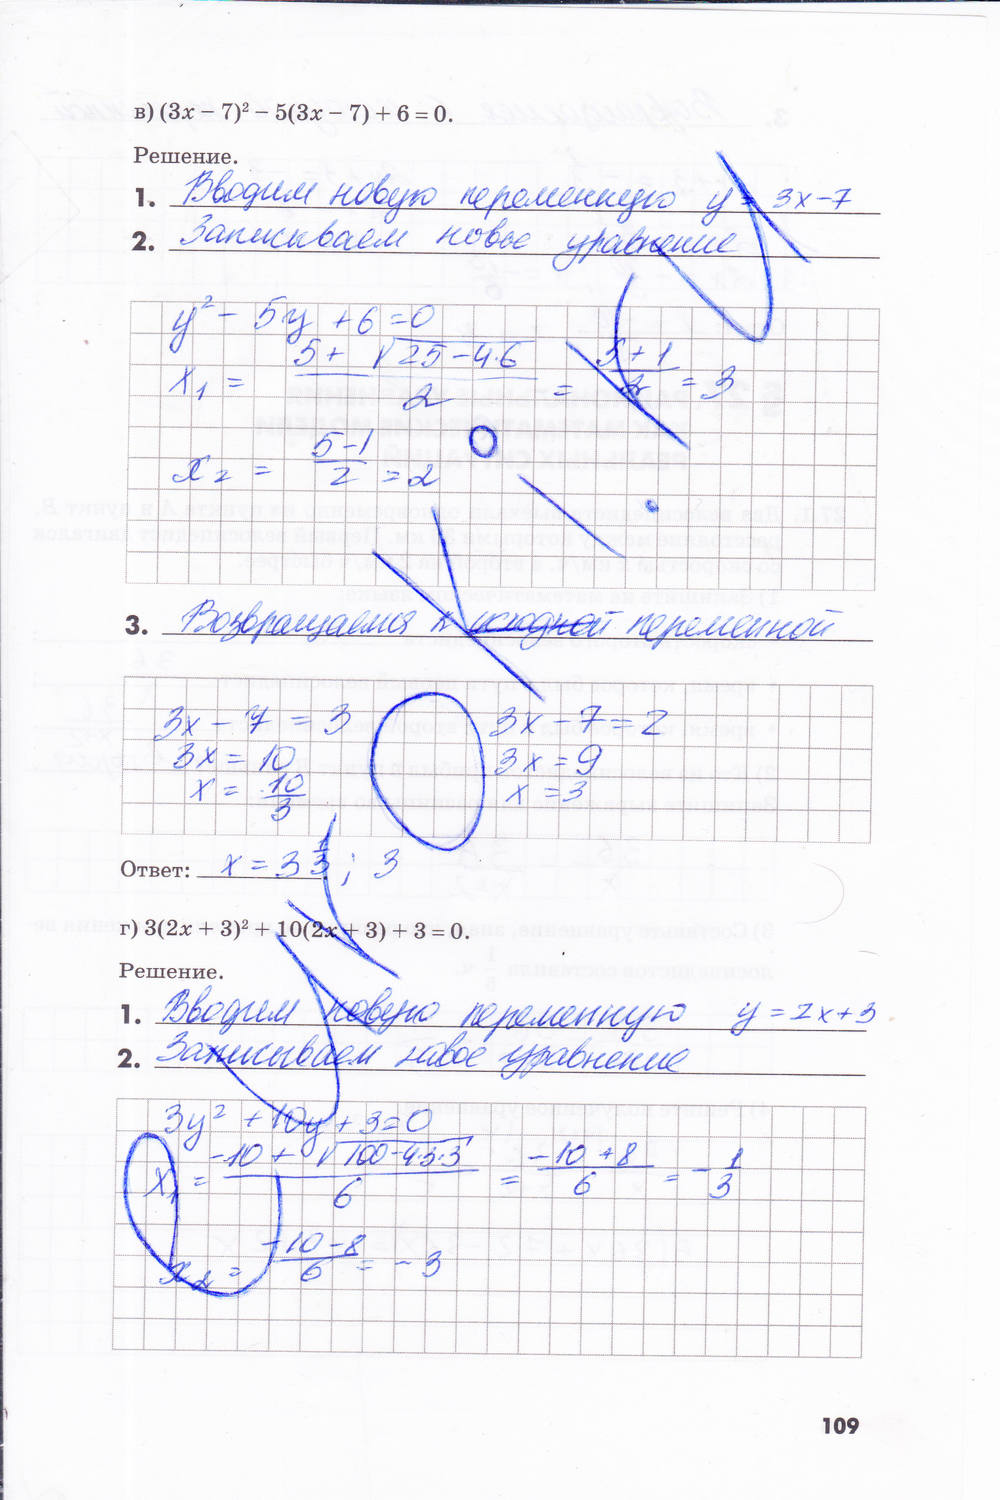 в) (3x − 7)² − 5(3x − 7) + 6 = 0.
Решение.
1. Вводим новую переменную y = 3x − 7
2. Записываем новое уравнение
y² − 5y + 6 = 0
x₁ = (5 + √(25 − 4·6))/2 = (5 + 1)/2 = 3
x₂ = (5 − 1)/2 = 2
3. Возвращаемся к исходной переменной
3x − 7 = 3 3x − 7 = 2
3x = 10 3x = 9
x = 10/3 x = 3
Ответ: x = 3 1/3 ; 3
г) 3(2x + 3)² + 10(2x + 3) + 3 = 0.
Решение.
1. Вводим новую переменную y = 2x + 3
2. Записываем новое уравнение
3y² + 10y + 3 = 0
x₁ = (−10 + √(100 − 4·3·3))/6 = (−10 + 8)/6 = −1/3
x₂ = (−10 − 8)/6 = −3
109